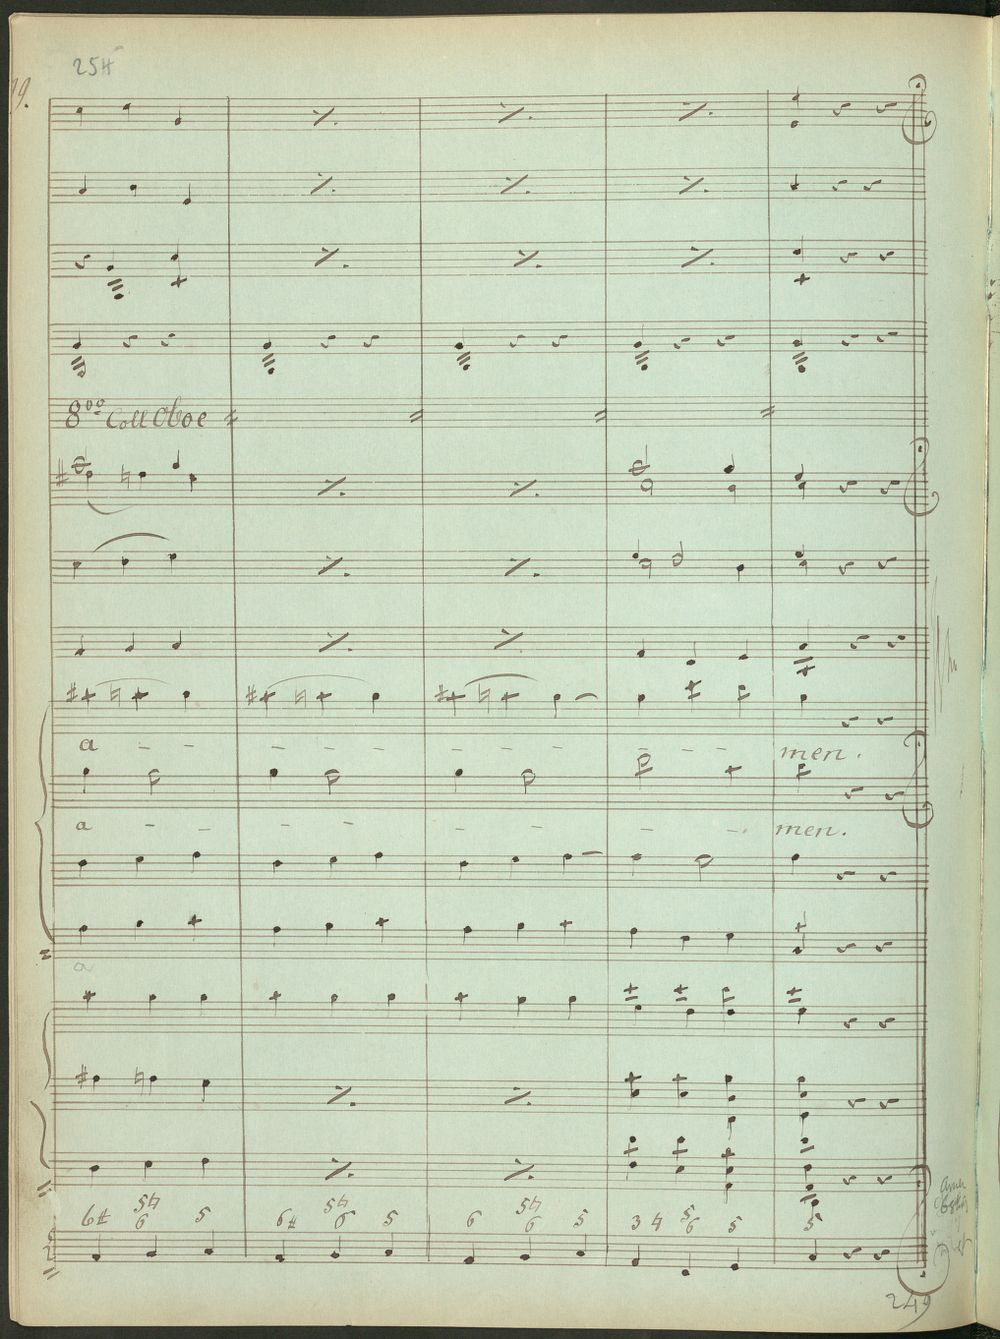 254
19.
8va Coll Oboe
a - - - - - - - - - - - men.
a - - - - - - - - men.
a
6# 5♮ 5 6# 5♮ 5 6 5♮ 5 3 ♮ 5 5 5
6 6 6 6
249